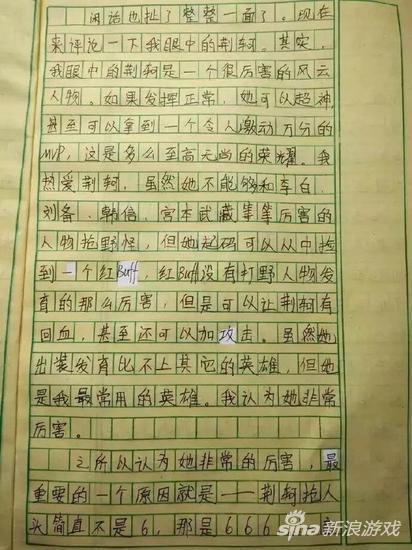 闲话也扯了整整一面了。现在
来评论一下我眼中的荆轲。其实，
我眼中的荆轲是一个很厉害的风云
人物。如果发挥正常，她可以超神，
甚至可以拿到一个令人激动万分的
MVP，这是多么至高无尚的荣耀。我
热爱荆轲，虽然她不能够和李白、
刘备、韩信、宫本武藏等等厉害的
人物抢野怪，但她起码可以从中捡
到一个红Buff，红Buff没有打野人物发
育的那么厉害，但是可以让荆轲有
回血，甚至还可以加攻击。虽然她
出装发育比不上其它的英雄，但她
是我最常用的英雄。我认为她非常
厉害。
之所以认为她非常的厉害，最
重要的一个原因就是——荆轲抢人
头简直不是6，那是666
sina新浪游戏